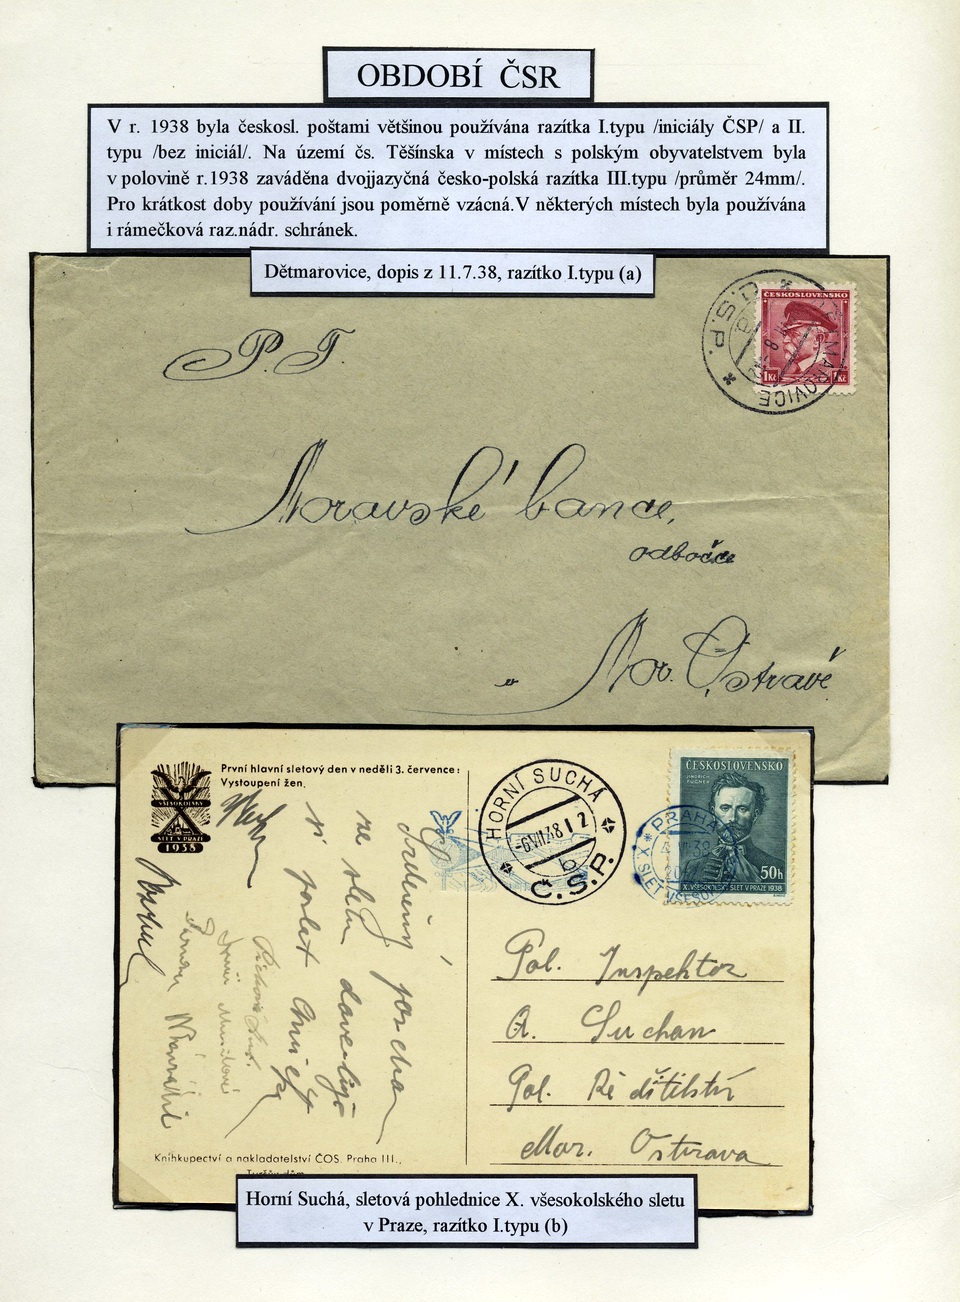 OBDOBÍ ČSR
V r. 1938 byla českosl. poštami většinou používána razítka I.typu /iniciály ČSP/ a II.
typu /bez iniciál/. Na území čs. Těšínska v místech s polským obyvatelstvem byla
v polovině r.1938 zaváděna dvojjazyčná česko-polská razítka III.typu /průměr 24mm/.
Pro krátkost doby používání jsou poměrně vzácná.V některých místech byla používána
i rámečková raz.nádr. schránek.
Dětmarovice, dopis z 11.7.38, razítko I.typu (a)
ČESKOSLOVENSKO
1Kč 1Kč
P. T.
Moravské bance,
odbočce
v Mor. Ostravě
První hlavní sletový den v neděli 3. července:
Vystoupení žen.
VŠESOKOLSKÝ
X
SLET V PRAZE
1938
HORNÍ SUCHÁ
-6.VII.38 12
b
Č.S.P.
ČESKOSLOVENSKO
JINDŘICH
FÜGNER
50h
X. VŠESOKOLSKÝ SLET V PRAZE 1938
PRAHA
Srdečný pozdrav
ze sletu
Pol. Inspektor
A. Suchan
Pol. Ředitelství
Mor. Ostrava
Knihkupectví a nakladatelství ČOS. Praha III.,
Tyršův dům
Horní Suchá, sletová pohlednice X. všesokolského sletu
v Praze, razítko I.typu (b)